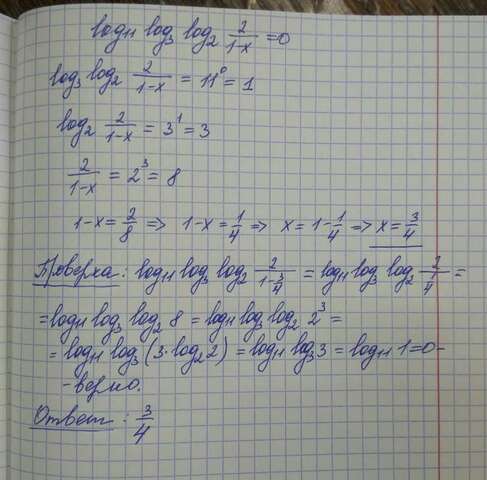 log₁₁ log₃ log₂ 2/(1-x) = 0
log₃ log₂ 2/(1-x) = 11⁰ = 1
log₂ 2/(1-x) = 3¹ = 3
2/(1-x) = 2³ = 8
1-x = 2/8 => 1-x = 1/4 => x = 1-1/4 => x = 3/4
Проверка: log₁₁ log₃ log₂ 2/(1-3/4) = log₁₁ log₃ log₂ 2/(1/4) =
= log₁₁ log₃ log₂ 8 = log₁₁ log₃ log₂ 2³ =
= log₁₁ log₃ (3·log₂ 2) = log₁₁ log₃ 3 = log₁₁ 1 = 0 -
- верно.
Ответ: 3/4